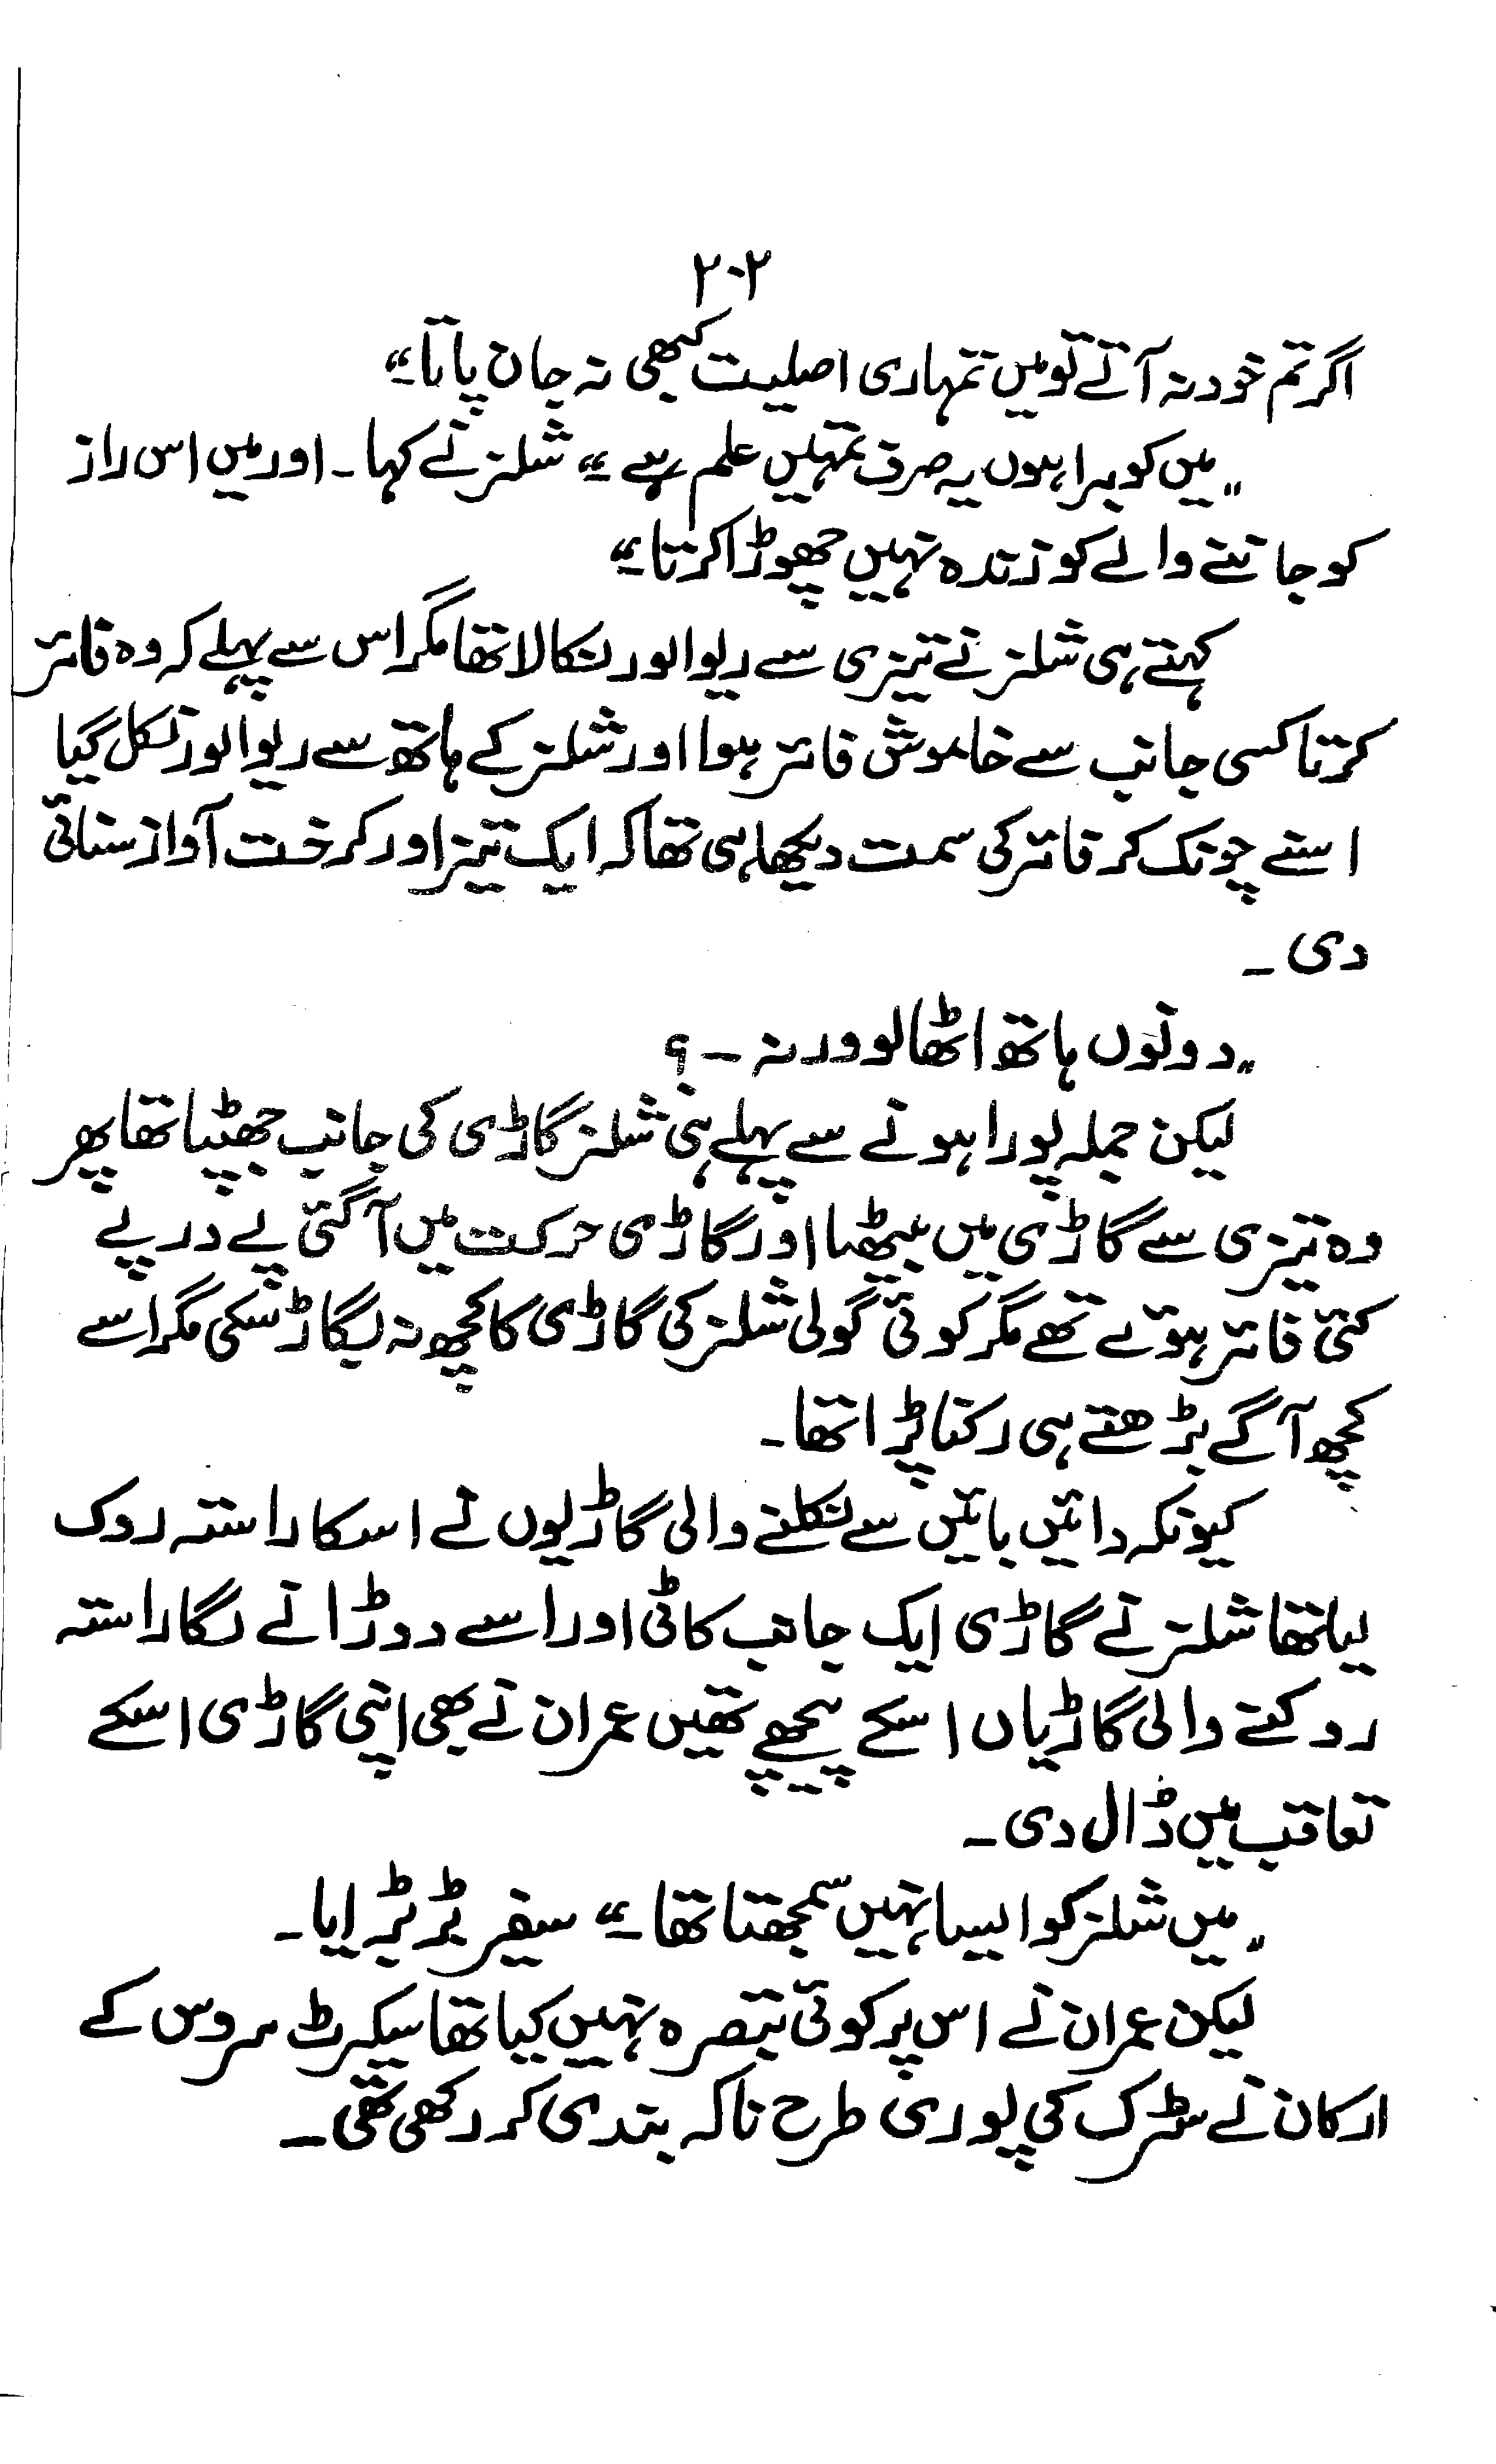 ۲۰۲
اگر تم خود نہ آتے تو میں تمہاری اصلیت کبھی نہ جان پاتا۔“
”میں کوبرا ہوں یہ صرف تمہیں علم ہے۔“ شلنر نے کہا۔ اور میں اس راز
کو جاننے والے کو زندہ نہیں چھوڑا کرتا۔“
کہتے ہی شلنر نے تیزی سے ریوالور نکالا تھا مگر اس سے پہلے کہ وہ فائر
کرتا کسی جانب سے خاموش فائر ہوا اور شلنر کے ہاتھ سے ریوالور نکل گیا
اسنے چونک کر فائر کی سمت دیکھا ہی تھا کہ ایک تیز اور کرخت آواز سنائی
دی۔
”دونوں ہاتھ اٹھا لو ورنہ ۔۔؟
لیکن جملہ پورا ہونے سے پہلے ہی شلنر گاڑی کی جانب جھپٹا تھا پھر
وہ تیزی سے گاڑی میں بیٹھا اور گاڑی حرکت میں آ گئی پے در پے
کئی فائر ہوئے تھے مگر کوئی گولی شلنر کی گاڑی کا کچھ نہ بگاڑ سکی مگر اسے
کچھ آگے بڑھتے ہی رکنا پڑا تھا۔
کیونکہ دائیں بائیں سے نکلنے والی گاڑیوں نے اسکا راستہ روک
لیا تھا شلنر نے گاڑی ایک جانب کاٹی اور اسے دوڑانے لگا راستہ
روکنے والی گاڑیاں اسکے پیچھے تھیں عمران نے بھی اپنی گاڑی اسکے
تعاقب میں ڈال دی۔
”میں شلنر کو ایسا نہیں سمجھتا تھا۔“ سفیر بڑبڑایا۔
لیکن عمران نے اس پر کوئی تبصرہ نہیں کیا تھا سیکرٹ سروس کے
ارکان نے سڑک کی پوری طرح ناکہ بندی کر رکھی تھی۔